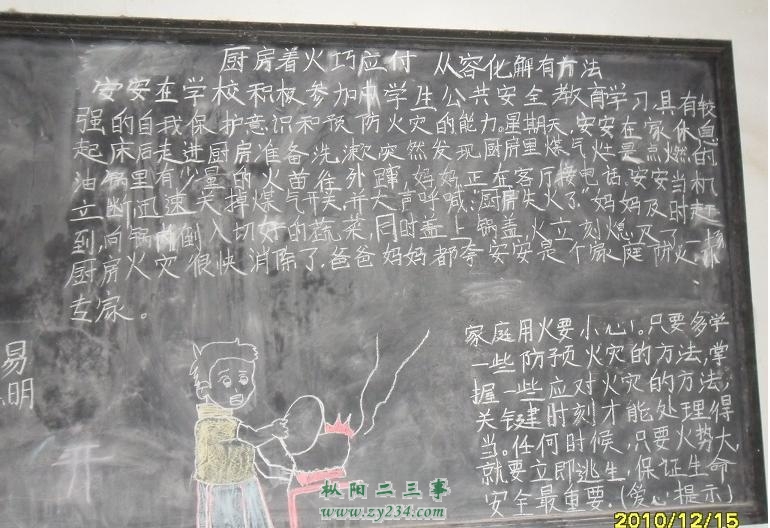 厨房着火巧应付 从容化解有方法
安安在学校积极参加中学生公共安全教育学习,具有较
强的自我保护意识和预防火灾的能力。星期天,安安在家休息
起床后走进厨房准备洗漱突然发现厨房里煤气灶是点燃的
油锅里有少量的火苗往外蹿,妈妈正在客厅接电话。安安当机
立断迅速关掉煤气开关,并大声呼喊:"厨房失火了"妈妈及时赶
到,向锅内倒入切好的蔬菜,同时盖上锅盖,火立刻熄灭了一场
厨房火灾很快消除了,爸爸妈妈都夸安安是个家庭防火小
专家。
家庭用火要小心!只要多学
一些防预火灾的方法,掌
握一些应对火灾的方法,
关键时刻才能处理得
当。任何时候,只要火势大,
就要立即逃生,保证生命
安全最重要。(爱心提示)
易
明
开
枞阳二三事
www.zy234.com
2010/12/15